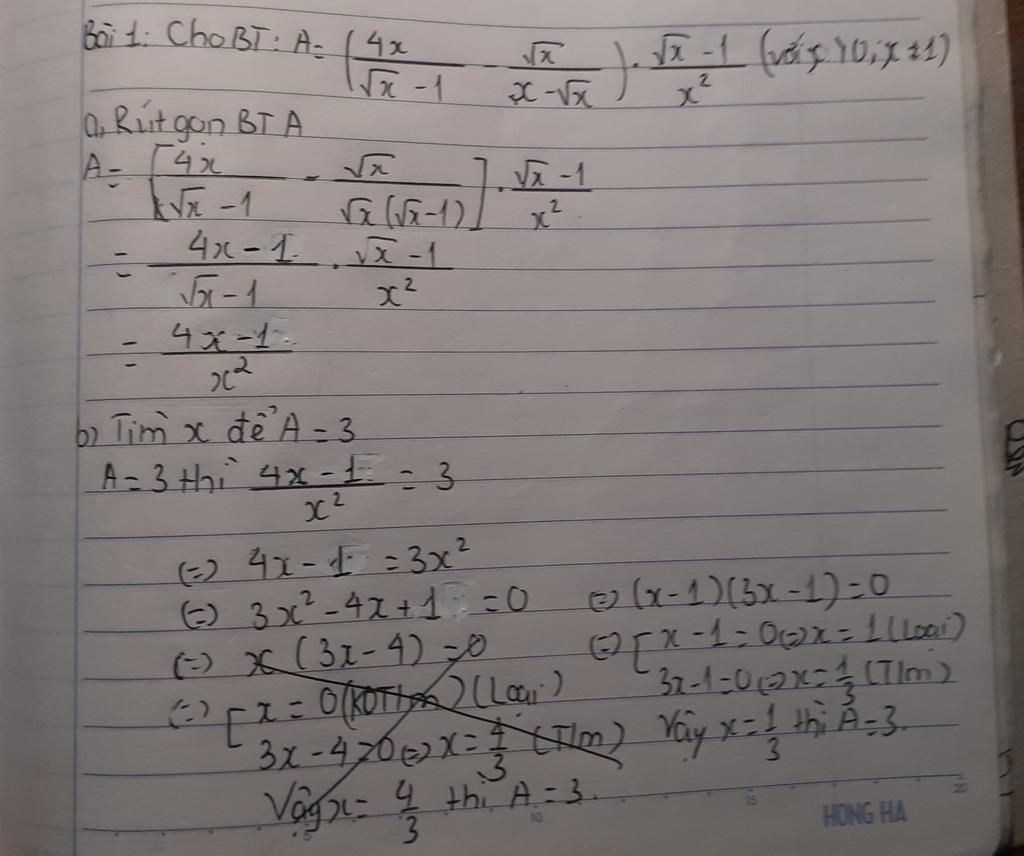 Bài 1: Cho BT: A = (4x/(√x - 1) - √x/(x - √x)) . (√x - 1)/x² (với x > 0; x ≠ 1)
a, Rút gọn BT A
A = [4x/(√x - 1) - √x/(√x(√x - 1))] . (√x - 1)/x²
= (4x - 1)/(√x - 1) . (√x - 1)/x²
= (4x - 1)/x²
b) Tìm x để A = 3
A = 3 thì (4x - 1)/x² = 3
(=) 4x - 1 = 3x²
(=) 3x² - 4x + 1 = 0
(=) x (3x - 4) = 0
(=) [ x = 0 (KOTlm) (Loại)
3x - 4 = 0 (=) x = 4/3 (T/m)
Vậy x = 4/3 thì A = 3.
(=) (x - 1)(3x - 1) = 0
(=) [ x - 1 = 0 (=) x = 1 (Loại)
3x - 1 = 0 (=) x = 1/3 (T/m)
Vậy x = 1/3 thì A = 3.
10 15 20
HONG HA